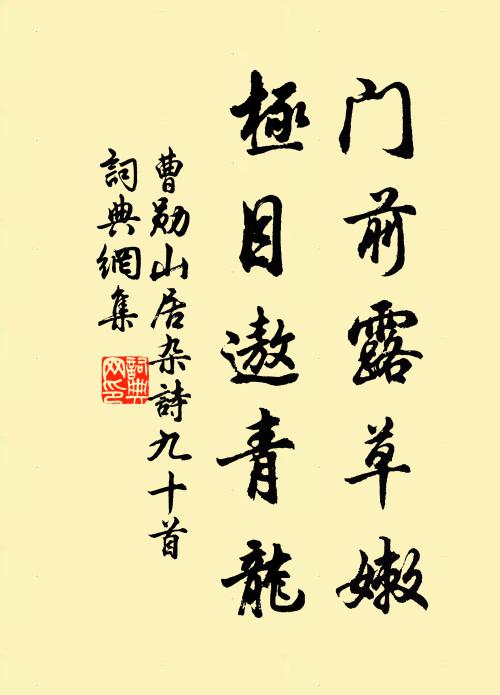 门前露草嫩
極目遨青龍
曹勋山居杂詩九十首
詞典網集
詞典网印